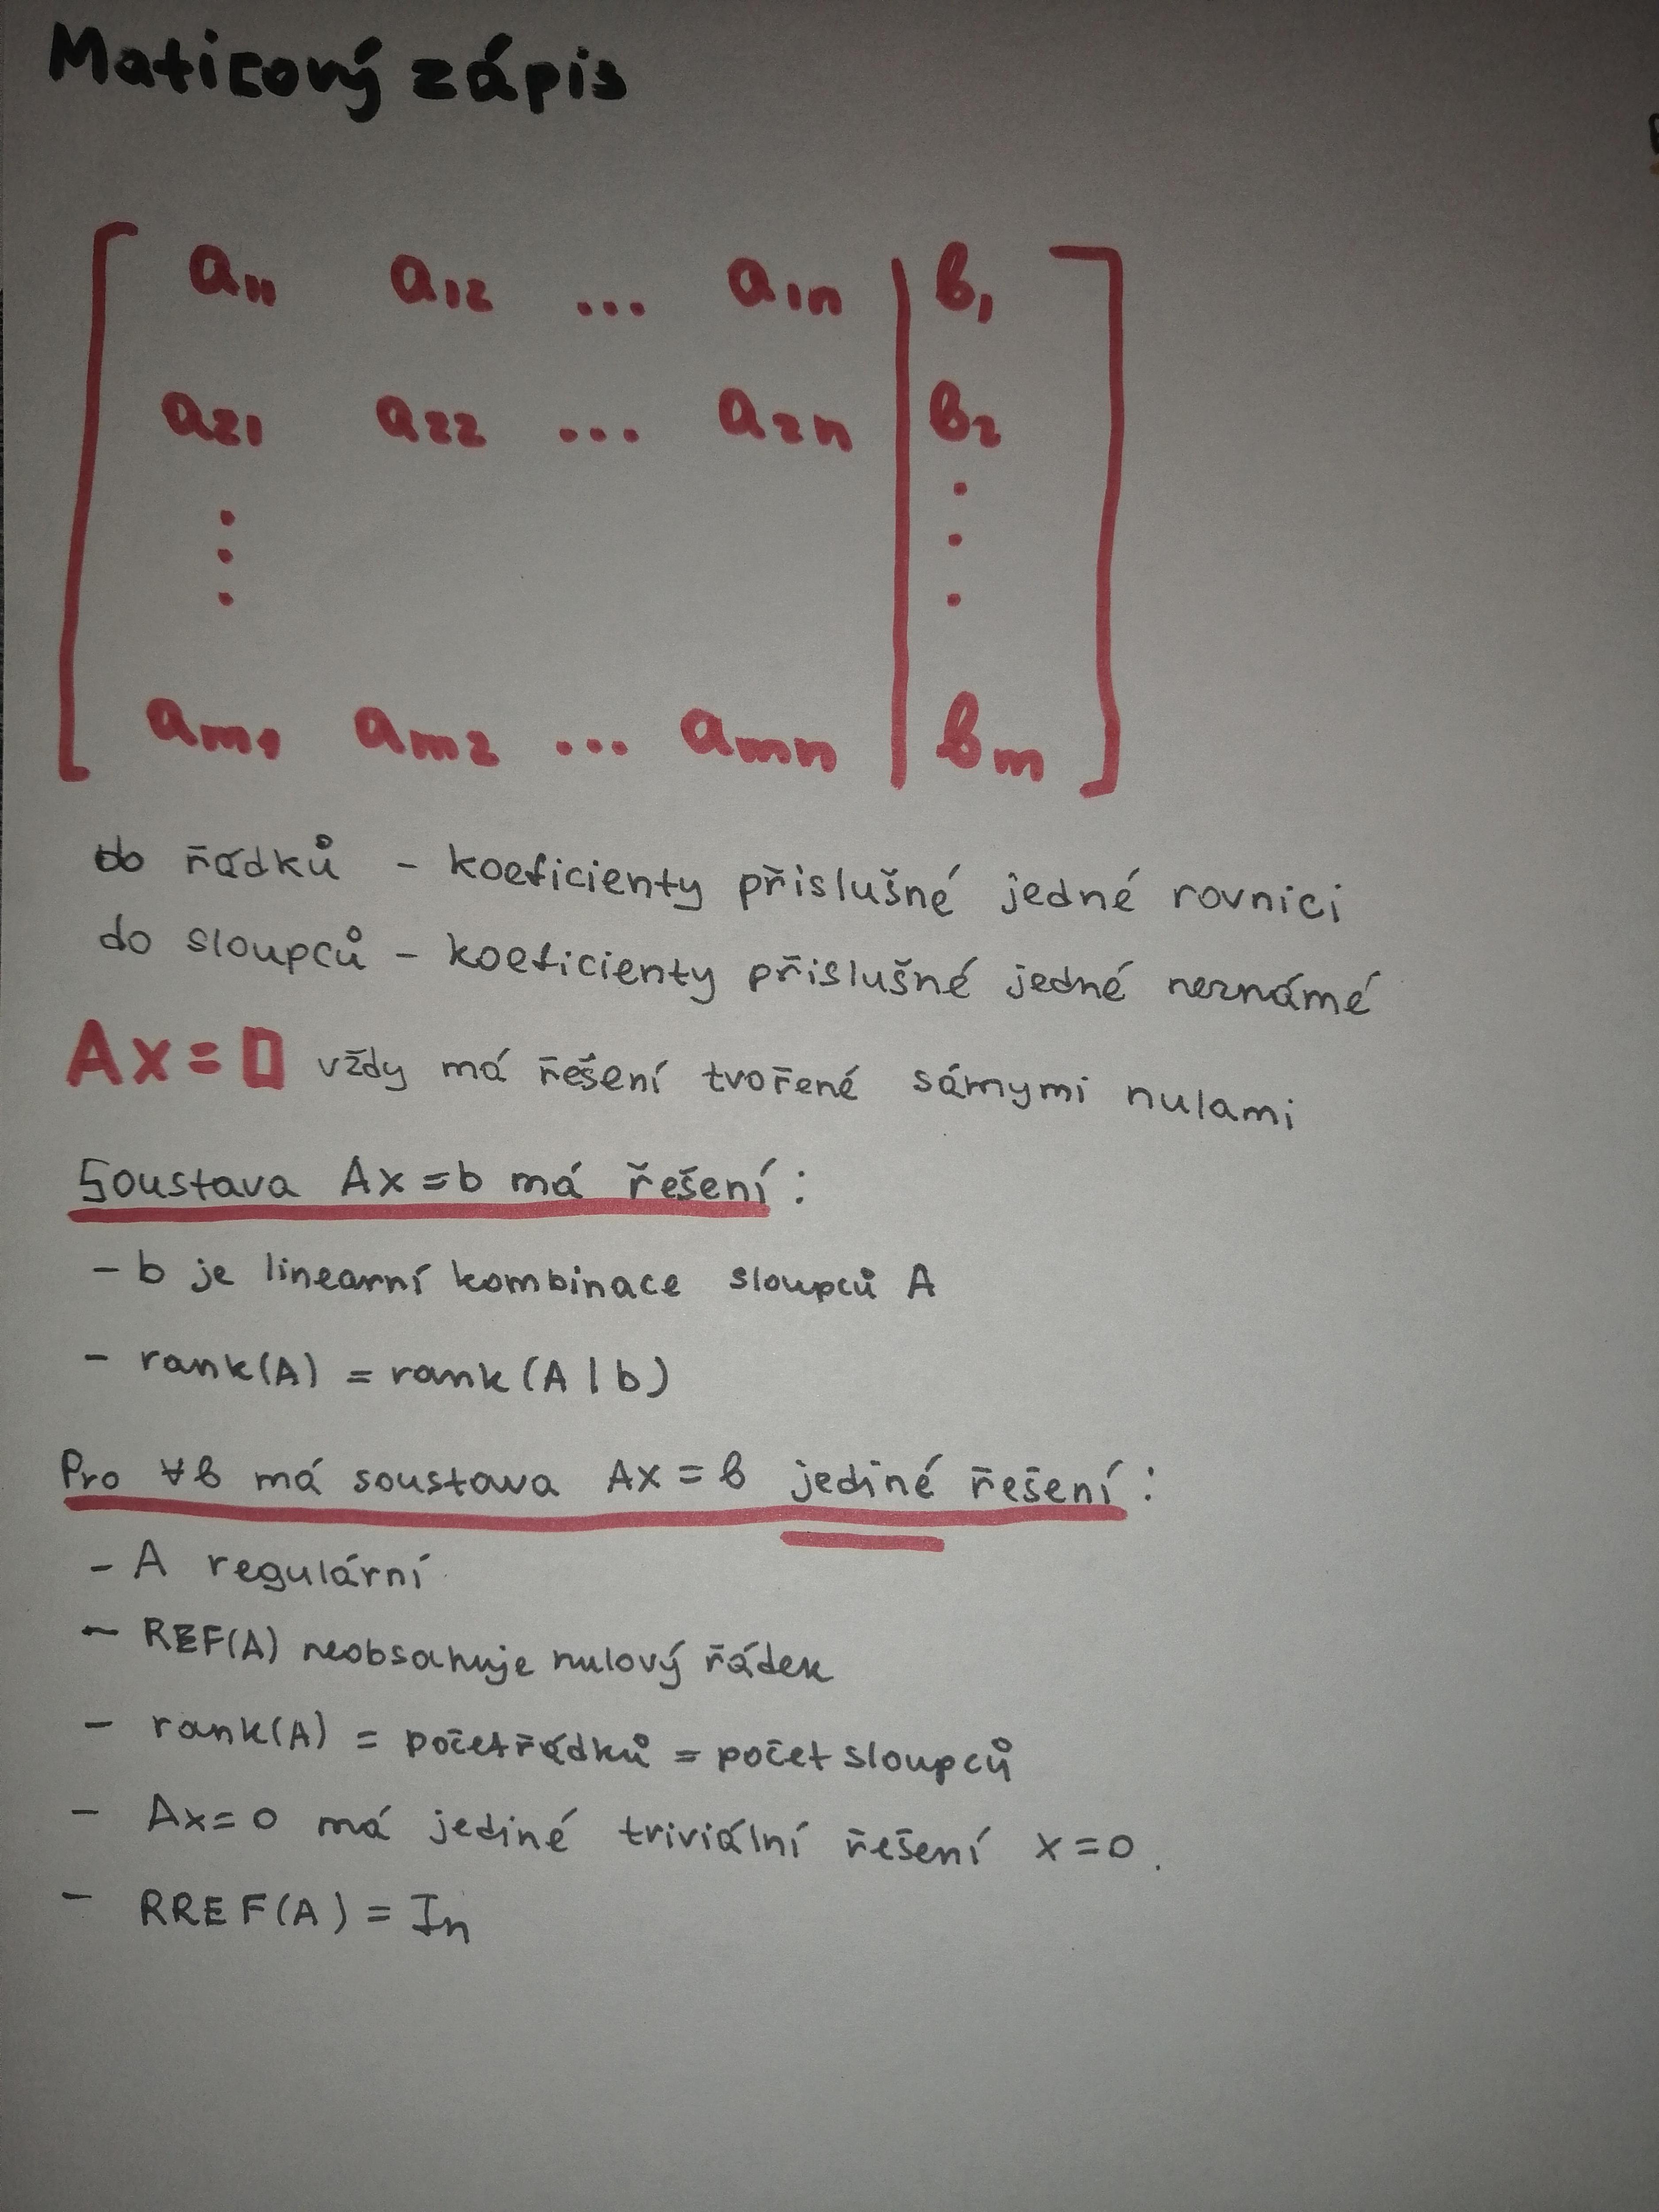 Maticový zápis
a11 a12 ... a1n | b1
a21 a22 ... a2n | b2
⋮ ⋮
am1 am2 ... amn | bm
do řádků - koeficienty příslušné jedné rovnici
do sloupců - koeficienty příslušné jedné neznámé
Ax = 0 vždy má řešení tvořené sámymi nulami
Soustava Ax = b má řešení :
- b je linearní kombinace sloupců A
- rank(A) = rank (A | b)
Pro ∀b má soustava Ax = b jediné řešení :
- A regulární
- REF(A) neobsahuje nulový řádek
- rank(A) = počet řádků = počet sloupců
- Ax = 0 má jediné triviální řešení x = 0.
- RREF(A) = In